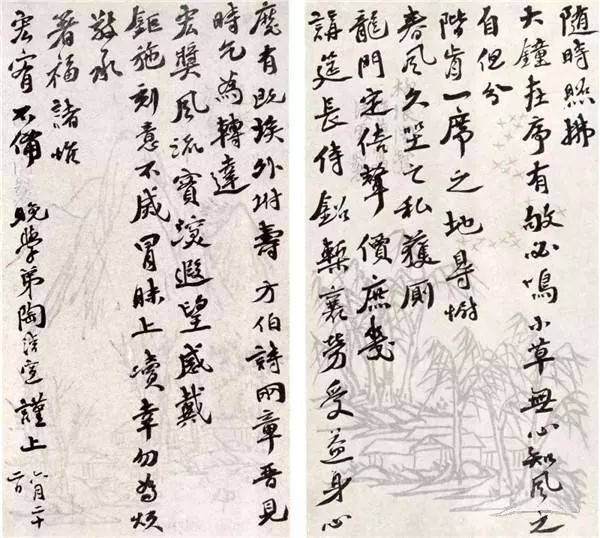 随時照拂
大鐘在序有敲必鳴小草無心知風之
自但分
階前一席之地得樹
春風久坐之私獲厠
龍門定倍聲價庶幾
講筵長侍鉛槧襄勞受益身心
靡有既矣外附壽方伯詩兩章晉見
時乞為轉達
宏獎風流實深遐望感戴
鉅施刻意不諼冒昧上瀆幸勿為煩
敬承
著福諸惟
宏宥不備 晚學弟陶濬宣謹上 六月二十
二日